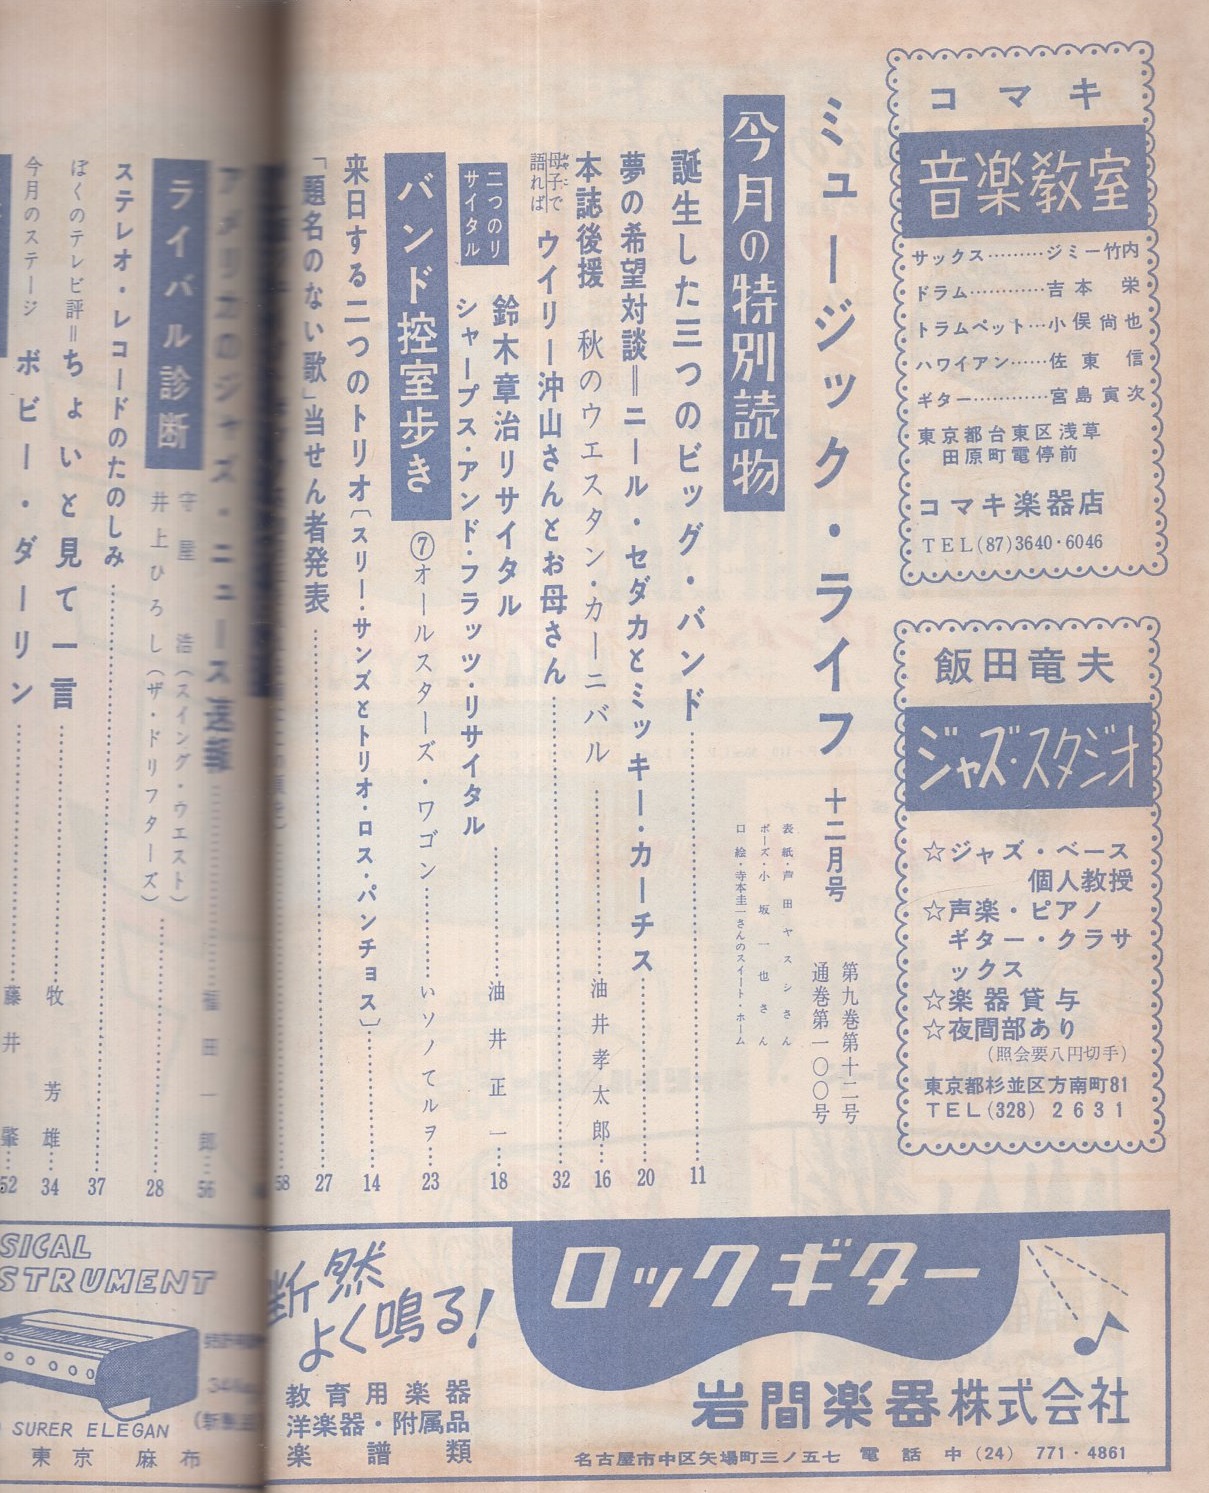 コマキ
音楽教室
サックス………ジミー竹内
ドラム…………吉本 栄
トラムペット…小俣尚也
ハワイアン……佐東 信
ギター…………宮島寅次
東京都台東区浅草
田原町電停前
コマキ楽器店
TEL(87)3640・6046
飯田竜夫
ジャズ・スタジオ
☆ジャズ・ベース
個人教授
☆声楽・ピアノ
ギター・クラサ
ックス
☆楽器貸与
☆夜間部あり
(照会要八円切手)
東京都杉並区方南町81
TEL(328) 2631
ミュージック・ライフ 十二月号
第九巻第十二号
通巻第一〇〇号
表紙・芦田ヤスシさん
ポーズ・小坂一也さん
口絵・寺本圭一さんのスイート・ホーム
今月の特別読物
誕生した三つのビッグ・バンド……11
夢の希望対談=ニール・セダカとミッキー・カーチス……20
本誌後援 秋のウエスタン・カーニバル……油井孝太郎…16
母子で語れば ウイリー沖山さんとお母さん……32
二つのリサイタル
鈴木章治リサイタル
シャープス・アンド・フラッツ・リサイタル……油井正一…18
バンド控室歩き ⑦オールスターズ・ワゴン……いソノてルヲ…23
来日する二つのトリオ〔スリー・サンズとトリオ・ロス・パンチョス〕……14
「題名のない歌」当せん者発表……27
58
アメリカのジャズ・ニュース速報……福田一郎…56
ライバル診断
守屋 浩(スイング・ウエスト)
井上ひろし(ザ・ドリフターズ)……28
ステレオ・レコードのたのしみ……37
ぼくのテレビ評=ちょいと見て一言……牧 芳雄…34
今月のステージ ボビー・ダーリン……藤井 肇…52
断然
よく鳴る!
ロックギター
教育用楽器
洋楽器・附属品
楽譜類
岩間楽器株式会社
名古屋市中区矢場町三ノ五七 電話 中(24) 771・4861
SICAL
STRUMENT
SURER ELEGAN
東京 麻布